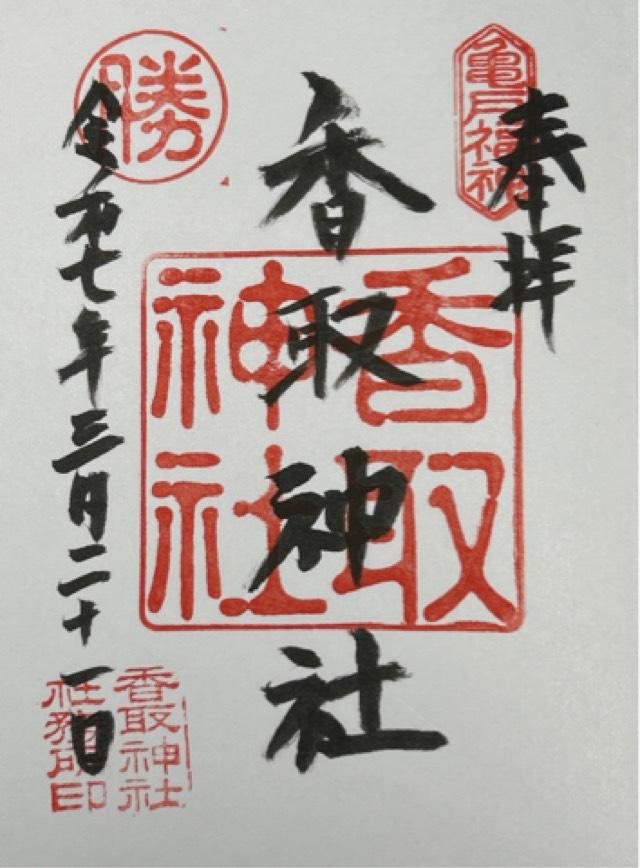 奉拝
亀戸福神
香取神社
香取神社
勝
令和七年三月二十一日
香取神社
社務所印